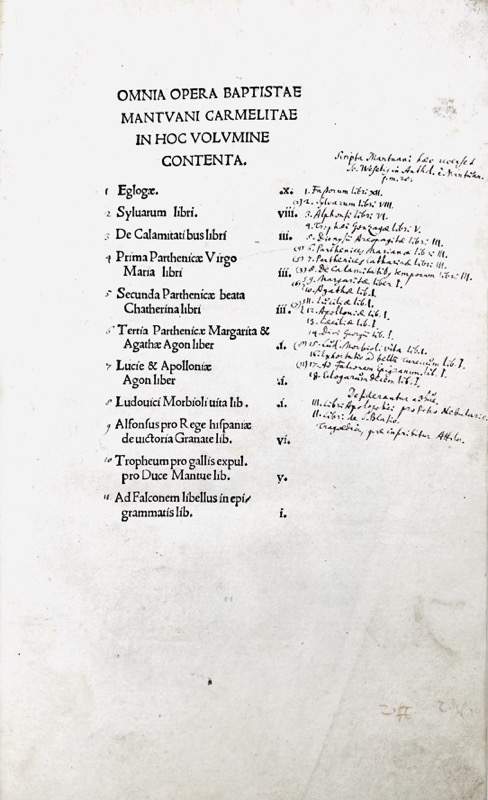 OMNIA OPERA BAPTISTAE
MANTVANI CARMELITAE
IN HOC VOLVMINE
CONTENTA.
1 Eglogæ. .x.
2 Syluarum libri. viii.
3 De Calamitatibus libri iii.
4 Prima Parthenicæ Virgo
Maria libri iii.
5 Secunda Parthenicæ beata
Chatherina libri iii.
6 Tertia Parthenicæ Margarita &
Agathæ Agon liber .i.
7 Lucie & Apolloniæ
Agon liber .i.
8 Ludouici Morbioli uita lib. .i.
9 Alfonsus pro Rege hispaniæ
de uictoria Granate lib. vi.
10 Tropheum pro gallis expul.
pro Duce Mantue lib. y.
11 Ad Falconem libellus in epi/
grammatis lib. i.
Scripta Mantuani haec
1. Fastorum libri XII.
2. Sylvarum libri VIII.
3. Alphonsi libri VI.
4. Trophei Gonzagæ libri V.
5. Dionysii Areopagitæ libri III.
6. Parthenices Marianæ libri III.
7. Parthenices Catharinæ libri III.
8. De Calamitatib. temporum libri III.
9. Margaritæ liber I.
10. Agathæ lib. I.
11. Luciæ lib. I.
12. Apolloniæ lib. I.
13. Cæciliæ lib. I.
14. Divi Georgii lib. I.
15. Lud. Morbioli vita lib. I.
lib. I.
17. Ad Falconem Epigramm. lib. I.
18. Eclogarum lib. I.
Desiderantur adhuc
III. Libri Apologetici
II. Libri de
Tragœdia, quæ inscribitur Attila.